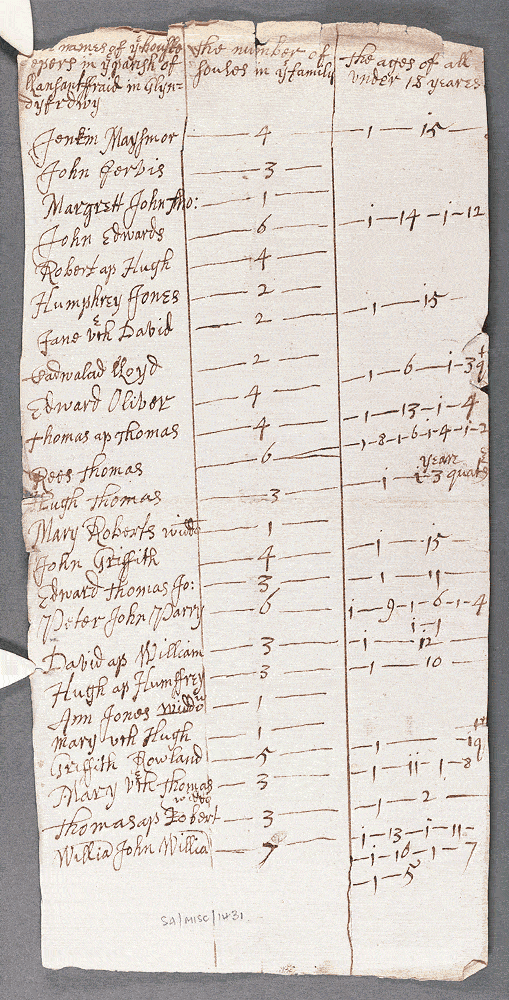 names of yͤ house
epers in yͤ parish of
llansantffraid in Glyn=
dyfrdwy
the number of
soules in yͤ family
the ages of all
under 18 yeares
Jenkin Maysmor — 4 — 1 — 15 —
John Jervis — 3 —
Margrett John Tho: — 1 —
John Edwards — 6 — 1 — 14 — 1 — 12
Robert ap Hugh — 4 —
Humphrey Jones — 2 —
Jane vͤch David — 2 — 1 — 15 —
Cadwalad lloyd — 2 —
Edward Oliver — 4 — 1 — 6 — 1 — 3
thomas ap thomas — 4 — 1 — 13 — 1 — 4
Rees thomas — 6 — 1 — 8 — 1 — 6 — 1 — 4 — 1 — 2
year
Hugh thomas — 3 — 1 — 3 quats
Mary Roberts widdo — 1 —
John Griffith — 4 — 1 — 15 —
Edward thomas Jo: — 3 — 1 — 11 —
Peter John Parry — 6 — 1 — 9 — 1 — 6 — 1 — 4
1 — 1
David ap William — 3 — 1 — 12
Hugh ap Humffrey — 3 — 1 — 10 —
Ann Jones widdow — 1 —
Mary vch Hugh — 1 —
Griffith Rowland — 5 — 1 —
Mary vͤch thomas — 3 — 1 — 11 — 1 — 8
widdo
thomas ap Robert — 3 — 1 — 2 —
Willia John Willia — 7 — 1 — 13 — 1 — 11 —
— 1 — 10 — 1 — 7
— 1 — 5
SA/MISC/1431